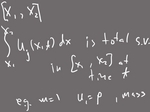 [x₁, x₂]
∫_{x₁}^{x₂} U_j(x,t) dx is total s.v.
in [x₁, x₂] at
time t
e.g. m=1 U₁=ρ, mass